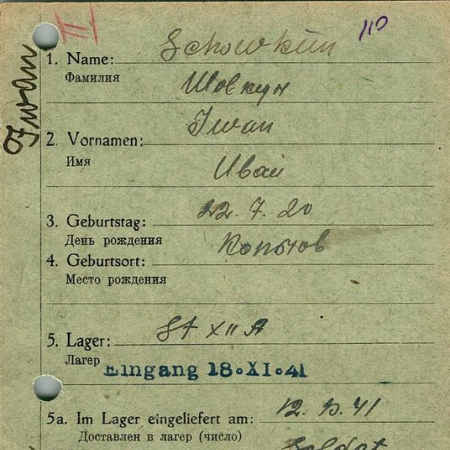 110
Iwan
1. Name: Schowkun
Фамилия
Шовкун
2. Vornamen: Iwan
Имя
Иван
3. Geburtstag: 22.7.20
День рождения
4. Geburtsort:
Место рождения
5. Lager: St XII A
Лагер
Eingang 18.XI.41
5a. Im Lager eingeliefert am:
Доставлен в лагер (число)
Soldat